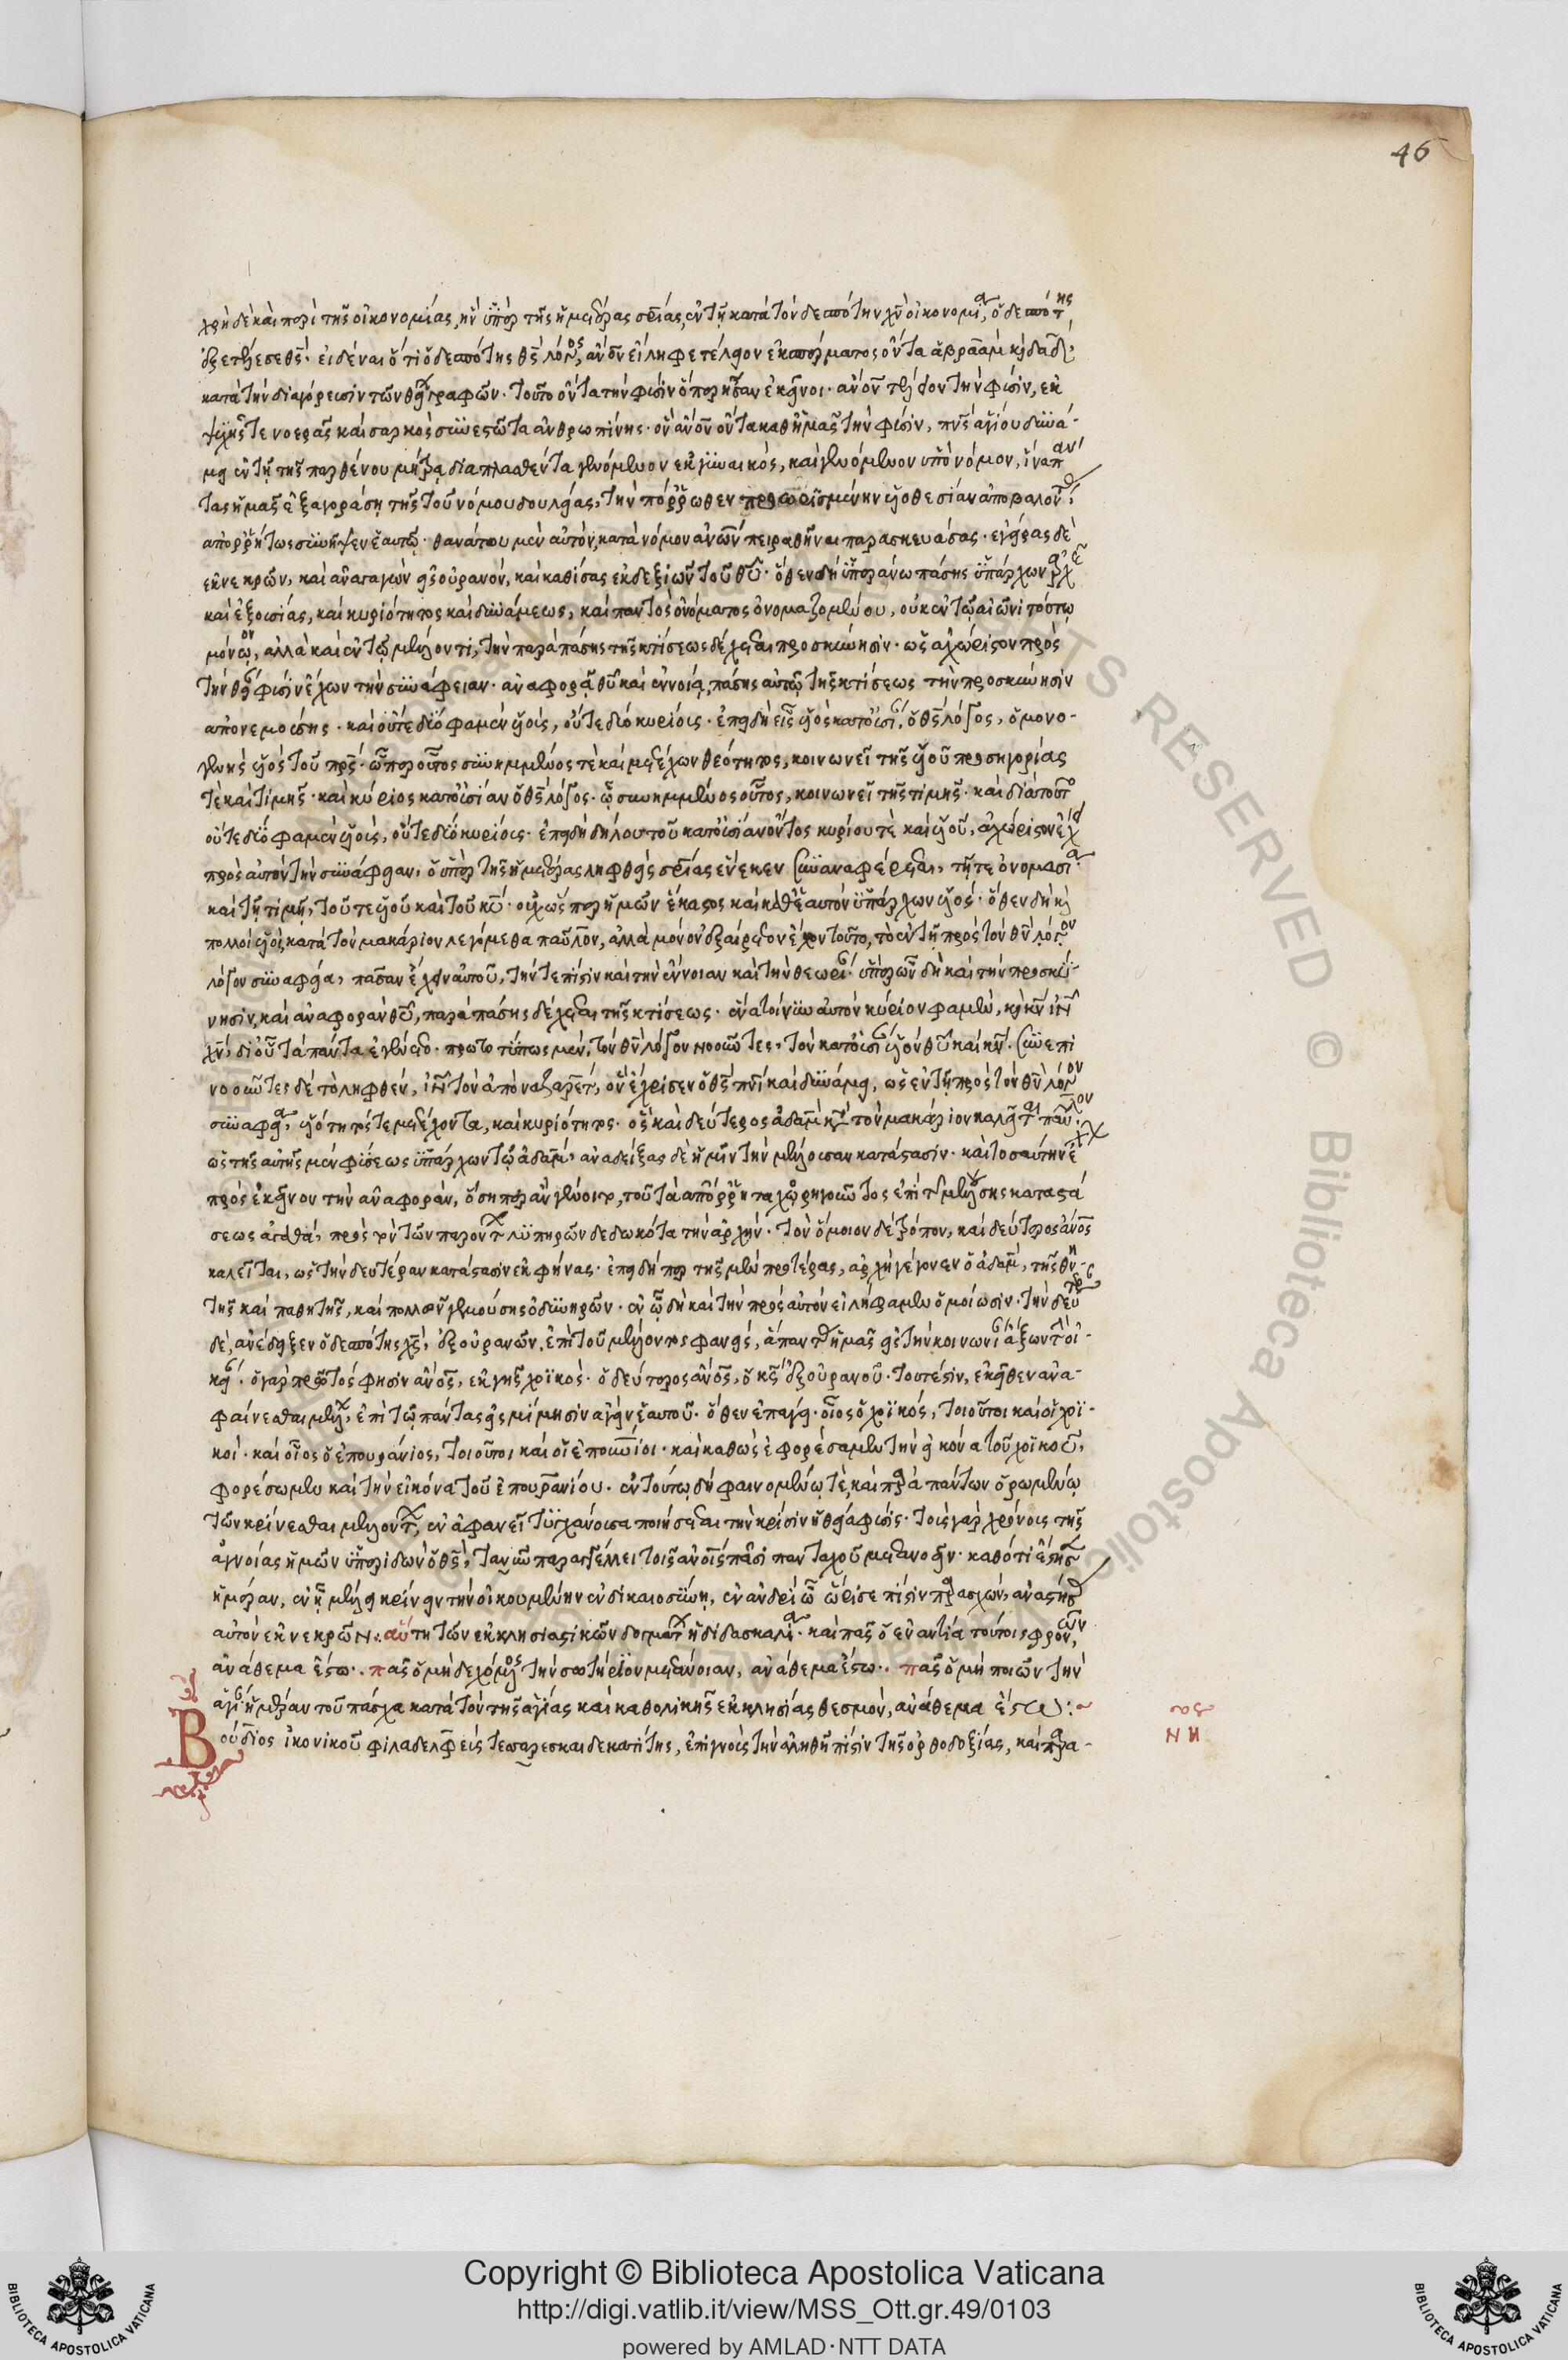 46
χρὴ δὲ καὶ περὶ τῆς οἰκονομίας, ἣν ὑπὲρ τῆς ἡμετέρας σρίας, ἐν τῇ κατὰ τὸν δεσπότην χν οἰκονομία, ὁ δεσπότης
ἐξετέλεσε θς· εἰδέναι ὅτι ὁ δεσπότης θς λόγος, ἄνον εἴληφε τέλειον ἐκ σπέρματος ὄντα ἀβραὰμ κ δαδ,
κατὰ τὴν διαγόρευσιν τῶν θείων γραφῶν. τοῦτο ὄντα τὴν φύσιν ὅπερ ἦσαν ἐκεῖνοι. ἄνον τέλειον τὴν φύσιν, ἐκ
ψυχῆς τε νοερᾶς καὶ σαρκὸς συνεστῶτα ἀνθρωπίνης. ὃν ἄνον ὄντα καθ' ἡμᾶς τὴν φύσιν, πνς ἁγίου δυνά-
μει ἐν τῇ τῆς παρθένου μήτρᾳ διαπλασθέντα γενόμενον ἐκ γυναικός, καὶ γενόμενον ὑπὸ νόμον, ἵνα παν
τας ἡμᾶς ἐξαγοράσῃ τῆς τοῦ νόμου δουλείας, τὴν πόρρωθεν προωρισμένην υἱοθεσίαν ἀπολαβόντ
ἀπορρήτως συνῆψεν ἑαυτῷ. θανάτου μὲν αὐτὸν, κατὰ νόμον ἀνων πειραθῆναι παρασκευάσας. ἐγείρας δὲ
ἐκ νεκρῶν, καὶ ἀναγαγὼν εἰς οὐρανόν, καὶ καθίσας ἐκ δεξιῶν τοῦ θυ. ὅθεν δὴ ὑπεράνω πάσης ὑπάρχων ἀρχῆς
καὶ ἐξουσίας, καὶ κυριότητος καὶ δυνάμεως, καὶ παντὸς ὀνόματος ὀνομαζομένου, οὐκ ἐν τῷ αἰῶνι τούτῳ
μόνον, ἀλλὰ καὶ ἐν τῷ μέλλοντι, τὴν παρὰ πάσης τῆς κτίσεως δέχεται προσκύνησιν. ὡς ἀχώριστον πρὸς
τὴν θείαν φύσιν ἔχων τὴν συνάφειαν. ἀναφορᾷ θυ καὶ ἐννοίᾳ, πάσης αὐτῷ τῆς κτίσεως τὴν προσκύνησιν
ἀπονεμούσης. καὶ οὔτε δύο φαμὲν υἱούς, οὔτε δύο κυρίους. ἐπειδὴ εἷς υἱὸς κατ' οὐσίαν, ὁ θς λόγος, ὁ μονο-
γενὴς υἱὸς τοῦ πρς. ᾧπερ οὗτος συνημμένος τὲ καὶ μετέχων θεότητος, κοινωνεῖ τῆς υἱοῦ προσηγορίας
τὲ καὶ τιμῆς. καὶ κύριος κατ' οὐσίαν ὁ θς λόγος. ᾧ συνημμένος οὗτος, κοινωνεῖ τῆς τιμῆς. καὶ διατοῦτο
οὔτε δύο φαμὲν υἱούς, οὔτε δύο κυρίους. ἐπειδὴ δήλου τοῦ κατ' οὐσίαν ὄντος κυρίου τὲ καὶ υἱοῦ, ἀχώριστον ἔχει
πρὸς αὐτὸν τὴν συνάφειαν, ὁ ὑπὲρ τῆς ἡμετέρας ληφθεὶς σρίας ἕνεκεν συναναφέρεται, τῇ τε ὀνομασία
καὶ τῇ τιμῇ, τοῦ τε υἱοῦ καὶ τοῦ κυ. οὐχ ὥσπερ ἡμῶν ἕκαστος καὶ καθ' ἑαυτὸν ὑπάρχων υἱός. ὅθεν δὴ κ
πολλοὶ υἱοὶ, κατὰ τὸν μακάριον λεγόμεθα παῦλον, ἀλλὰ μόνον ἐξαίρετον ἔχων τοῦτο, τὸ ἐν τῇ πρὸς τὸν θν λόγον
λόγον συναφεία, πᾶσαν ἔχειν αὐτοῦ, τήν τε πίστιν καὶ τὴν ἔννοιαν καὶ τὴν θεωρίαν. ὑπὲρ ὧν δὴ καὶ τὴν προσκύ-
νησιν, καὶ ἀναφορὰν θυ, παρὰ πάσης δέχεται τῆς κτίσεως. ἕνα τοίνυν αὐτὸν κύριον φαμὲν, κ κν ιν
χν, δι' οὗ τὰ πάντα ἐγένετο. πρωτοτύπως μὲν, τὸν θν λόγον νοοῦντες, τὸν κατ' οὐσίαν υἱὸν θυ καὶ κν. συνεπι
νοοῦντες δὲ τὸ ληφθὲν, ιν τὸν ἀπὸ ναζαρὲτ, ὃν ἔχρισεν ὁ θς πνι καὶ δυνάμει, ὡς ἐν τῇ πρὸς τὸν θν λόγον
συναφεία, υἱότητός τε μετέχοντα, καὶ κυριότητος. ὃς καὶ δεύτερος ἀδὰμ κατὰ τὸν μακάριον καλεῖται παῦλον
ὡς τῆς αὐτῆς μὲν φύσεως ὑπάρχων τῷ ἀδάμ, ἀναδείξας δὲ ἡμῖν τὴν μέλλουσαν κατάστασιν. καὶ τοσαύτην ἔχων
πρὸς ἐκεῖνον τὴν ἀναφορὰν, ὅση περ ἂν γένοιτο, τοῦ τὰ ἀπόρρητα χορηγοῦντος ἐπὶ τῆς μελλούσης καταστά
σεως ἀγαθά, πρὸς τὸν τῶν παρόντων λυπηρῶν δεδωκότα τὴν ἀρχήν. τὸν ὅμοιον δὲ τρόπον, καὶ δεύτερος ἄνος
καλεῖται, ὡς τὴν δευτέραν κατάστασιν ἐκφήνας. ἐπειδήπερ τῆς μὲν προτέρας, ἀρχὴ γέγονεν ὁ ἀδάμ, τῆς θνη-
τῆς καὶ παθητῆς, καὶ πολλῶν γεμούσης ὀδυνηρῶν. ἐν ᾧ δὴ καὶ τὴν πρὸς αὐτὸν εἰλήφαμεν ὁμοίωσιν. τὴν δευτέραν
δὲ, ἀνέδειξεν ὁ δεσπότης χς, ἐξ οὐρανῶν, ἐπὶ τοῦ μέλλοντος φανείς, ἅπαντας ἡμᾶς εἰς τὴν κοινωνίαν ἄξων τὴν οἰ-
κείαν. ὁ γὰρ πρῶτος φησὶν ἄνος, ἐκ γῆς χοϊκός. ὁ δεύτερος ἄνος, ὁ κς ἐξ οὐρανοῦ. τουτέστιν, ἐκεῖθεν ἀνα-
φαίνεσθαι μέλλων, ἐπὶ τῷ πάντας εἰς μίμησιν ἄγειν ἑαυτοῦ. ὅθεν ἐπάγει. οἷος ὁ χοϊκός, τοιοῦτοι καὶ οἱ χοϊ-
κοί. καὶ οἷος ὁ ἐπουράνιος, τοιοῦτοι καὶ οἱ ἐπουνίοι. καὶ καθὼς ἐφορέσαμεν τὴν εἰκόνα τοῦ χοϊκοῦ,
φορέσωμεν καὶ τὴν εἰκόνα τοῦ ἐπουρανίου. ἐν τούτῳ δὴ φαινομένῳ τὲ, καὶ παρὰ πάντων ὁρωμένῳ
τῶν κρίνεσθαι μελλόντων, ἐν ἀφανεῖ τυγχάνουσα ποιήσεται τὴν κρίσιν ἡ θεία φύσις. τοὺς γὰρ χρόνους τῆς
ἀγνοίας ἡμῶν ὑπεριδὼν ὁ θς, τανῦν παραγγέλλει τοῖς ἀνοις πᾶσι πανταχοῦ μετανοεῖν. καθότι ἔστησεν
ἡμέραν, ἐν ᾗ μέλλει κρίνειν τὴν οἰκουμένην ἐν δικαιοσύνῃ, ἐν ἀνδρὶ ᾧ ὥρισε πίστιν παρασχών, ἀναστήσας
αὐτὸν ἐκ νεκρῶν. αὕτη τῶν ἐκκλησιαστικῶν δογμάτων ἡ διδασκαλία. καὶ πᾶς ὁ ἐναντία τούτοις φρονῶν,
ἀνάθεμα ἔστω. πᾶς ὁ μὴ δεχόμενος τὴν σωτήριον μετάνοιαν, ἀνάθεμα ἔστω. πᾶς ὁ μὴ ποιῶν τὴν
ἁγίαν ἡμέραν τοῦ πάσχα κατὰ τὸν τῆς ἁγίας καὶ καθολικῆς ἐκκλησίας θεσμόν, ἀνάθεμα ἔστω:
Βούδιος ἰκονίκου φιλαδελφεὺς τεσσαρεσκαιδεκατίτης, ἐπιγνοὺς τὴν ἀληθῆ πίστιν τῆς ὀρθοδοξίας, καὶ παρα-
RIGHTS RESERVED © Biblioteca Apostolica Vaticana
BIBLIOTECA APOSTOLICA VATICANA
Copyright © Biblioteca Apostolica Vaticana
http://digi.vatlib.it/view/MSS_Ott.gr.49/0103
powered by AMLAD·NTT DATA
BIBLIOTECA APOSTOLICA VATICANA